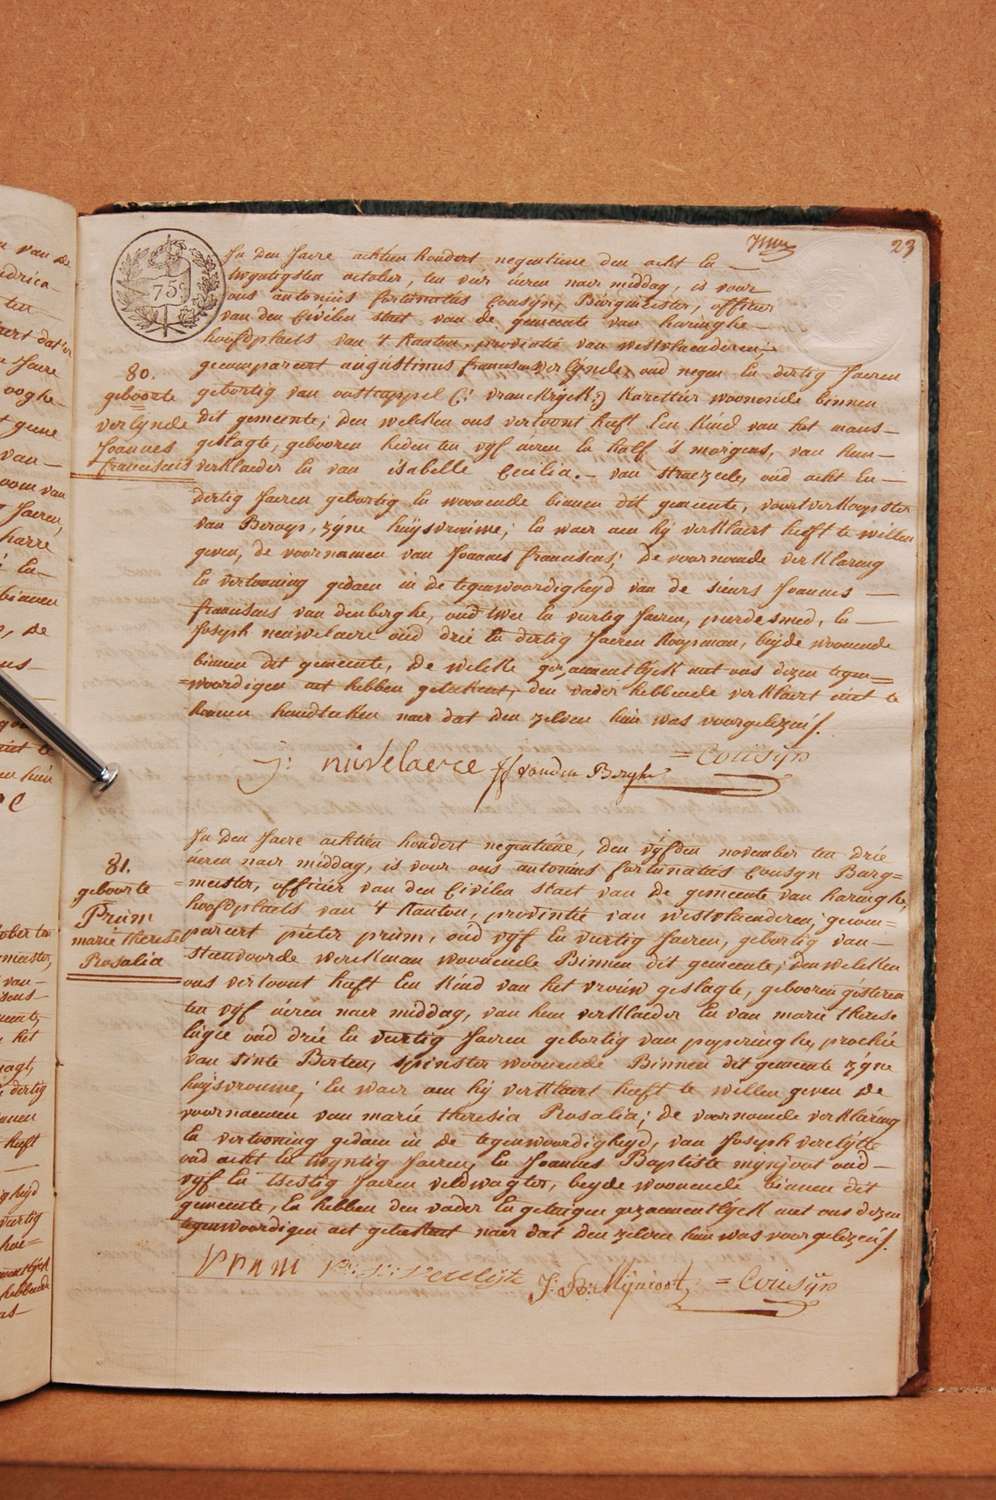 23
75c
In den Jaere achtien hondert negentiene den acht en
twyntigsten october, ten vier uren naer middag, is voor
ons antonius fortunatus Cousyn, Burgmeester, officier
van den Civilen staet van de gemeente van haringhe
hoofdplaets van 't Kanton, provintie van westvlaenderen;
gecompareert augustinus franciscus verlynde, oud negen en dertig Jaeren
gebortig van oostcappel (in vranckryck) Karettier woonende binnen
dit gemeente; den welcken ons vertoont heeft Een Kind van het mans-
geslagte, gebooren heden ten vyf uren en half 's morgens, van hem
verklaerder en van isabelle Cecilia van straezeele, oud acht en
dertig Jaeren gebortig en woonende binnen dit gemeente, voortverkoopster
van Beroep, zyne huysvrouwe; en waer aen hy verklaert heeft te willen
geven, de voornamen van Joannes franciscus; de voornoemde verklaring
en vertooning gedaen in de tegenwoordigheyd van de sieurs Joannes
franciscus van denberghe, oud twee en veertig Jaeren, peerdesmed, en
Joseph neuwelaere oud drie en dertig Jaeren Koopman, beyde woonende
binnen dit gemeente, de welcke gezaementlyck met ons dezen tegen=
=woordigen act hebben geteekent, den vader hebbende verklaert niet te
konnen handteeken naer dat den zelven hun was voorgelezen.
80.
geboorte
verlynde
Joannes
franciscus
j: nuvelaere jf vanden Berghe = Cousyn
In den Jaere achtien hondert negentiene, den vyfden november ten drie
uren naer middag, is voor ons antonius fortunatus Cousyn Burg=
=meester, officier van den Civilen staet van de gemeente van haringhe,
hoofdplaets van 't Kanton, provintie van westvlaenderen; gecom=
pareert pieter prüm, oud vyf en veertig Jaeren, gebortig van
steenvoorde werckman woonende Binnen dit gemeente; den welcken
ons vertoont heeft Een Kind van het vrouw geslagte, gebooren gisteren
ten vyf uren naer middag, van hem verklaerder en van marie therese
oud drie en veertig Jaeren gebortig van poperinghe, prochie
van sinte Berten, spinster woonende Binnen dit gemeente zyne
huysvrouwe; en waer aen hy verklaert heeft te willen geven de
voornaemen van marie theresia Rosalia; de voornoemde verklaring
en vertooning gedaen in de tegenwoordigheyd, van Joseph verelytte
oud acht en twyntig Jaeren, en Joannes Baptiste mynjoot oud
vyf en tsestig Jaeren veldwagter, beyde woonende binnen dit
gemeente, en hebben den vader en getuigen gezaementlyck met ons dezen
tegenwoordigen act geteekent naer dat den zelven hun was voorgelezen.
81.
geboorte
Prüm
marie therese
Rosalia
Prüm J: B: Mynioot = Cousyn